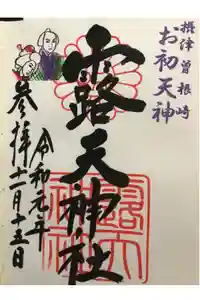 摂津曽根崎
お初天神
露天神社
令和元年
十一月十五日
参拝